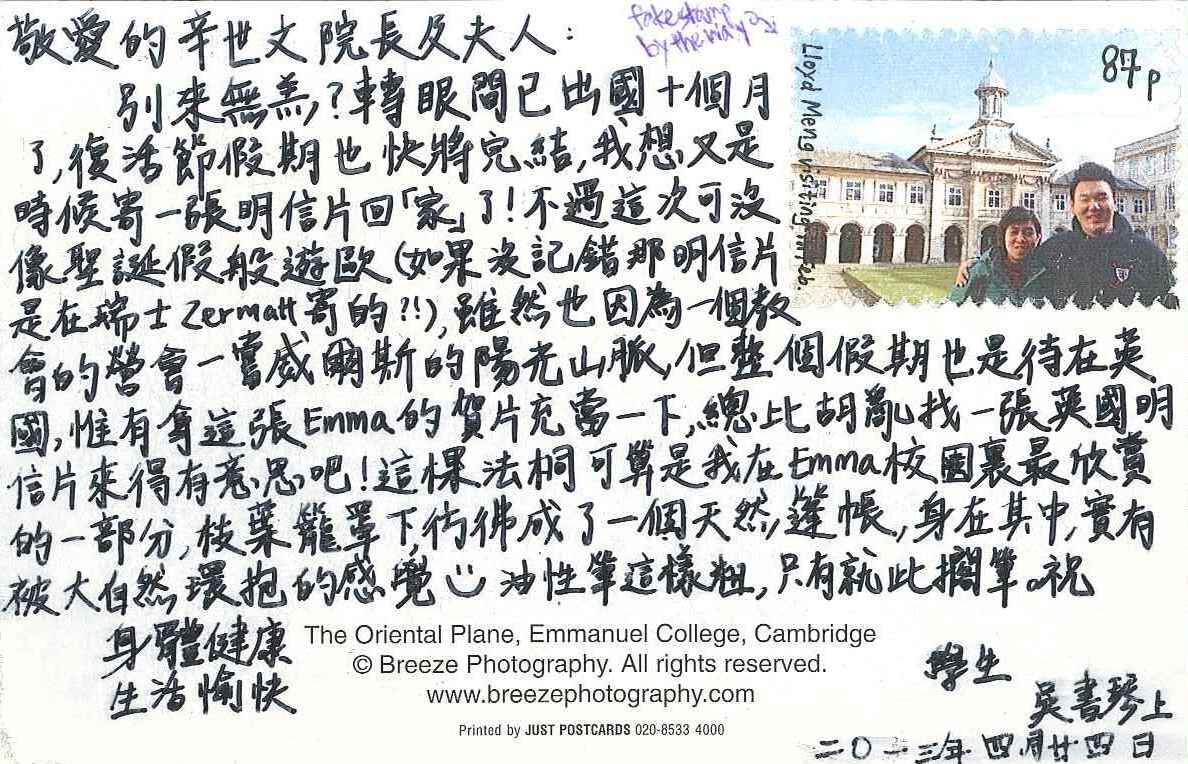 敬愛的辛世文院長及夫人：
fake stamp
by the way
87p
Lloyd Meng visiting in Feb
別來無恙？轉眼間已出國十個月
了，復活節假期也快將完結，我想又是
時候寄一張明信片回「家」了！不過這次可沒
像聖誕假般遊歐（如果沒記錯那明信片
是在瑞士Zermatt寄的?!），雖然也因為一個教
會的營會一嘗威爾斯的陽光山脈，但整個假期也是待在英
國，惟有拿這張Emma的賀片充當一下，總比胡亂找一張英國明
信片來得有意思吧！這棵法桐可算是我在Emma校園裏最欣賞
的一部分，枝葉籠罩下，彷彿成了一個天然篷帳，身在其中，實有
被大自然環抱的感覺 油性筆這樣粗，只有就此擱筆。祝
身體健康
生活愉快
The Oriental Plane, Emmanuel College, Cambridge
© Breeze Photography. All rights reserved.
www.breezephotography.com
Printed by JUST POSTCARDS 020-8533 4000
學生
吳書琴上
二〇一三年四月廿四日